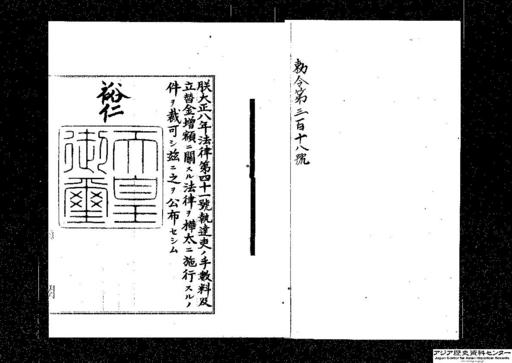 勅令第三百十八號
朕大正八年法律第四十一號執達吏ノ手數料及
立替金增額ニ關スル法律ヲ樺太ニ施行スルノ
件ヲ裁可シ茲ニ之ヲ公布セシム
裕仁
天皇
御璽
アジア歴史資料センター
Japan Center for Asian Historical Records